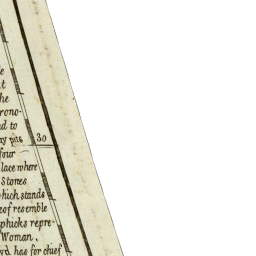 the
rono-
d to
ay pits 30
four
lace where
Stones
hich stands
eof resemble
phicks repre-
Woman.
vd has for chief